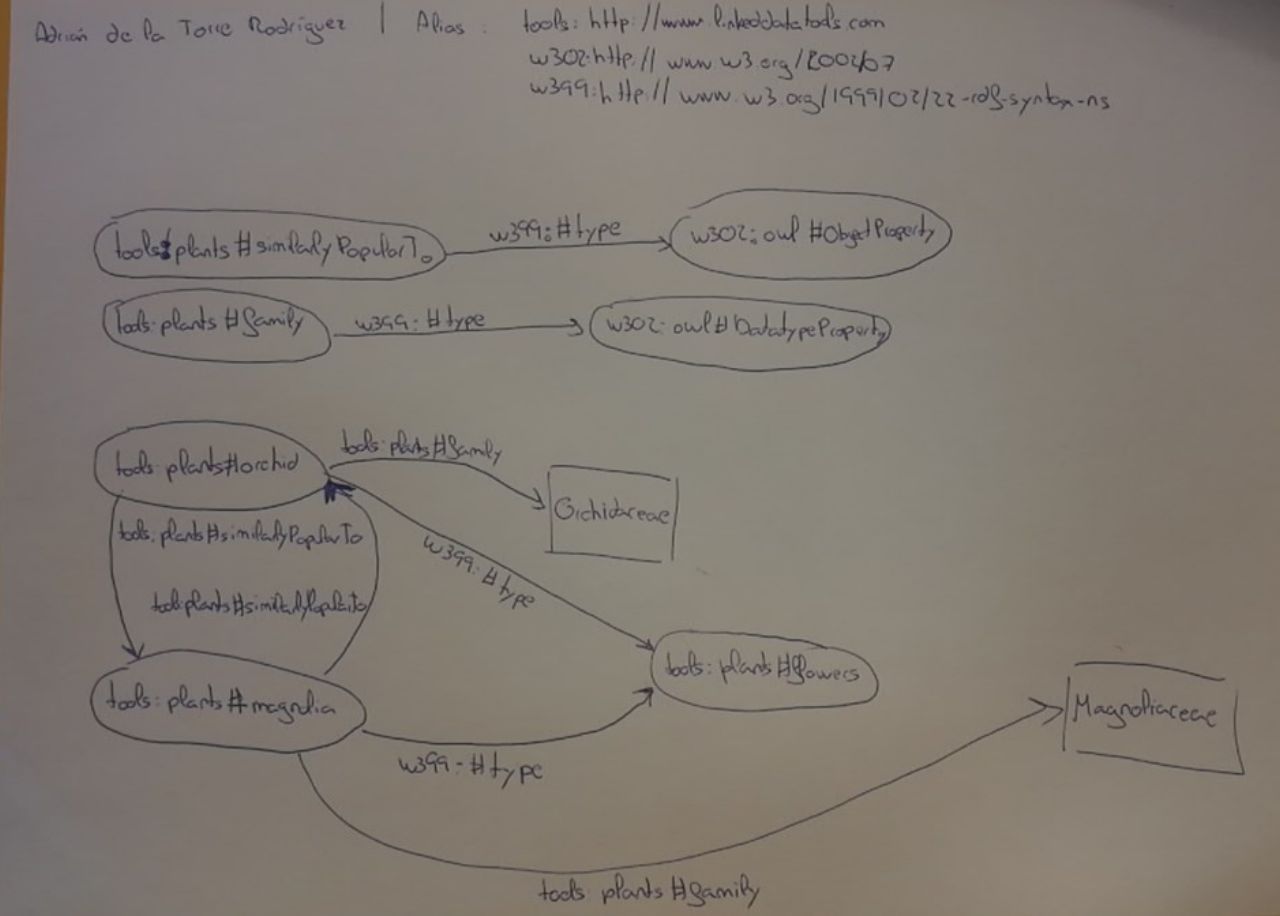 Adrián de la Torre Rodríguez | Alias : tools: http://www.linkeddatatools.com
w302:http://www.w3.org/2002/07
w399:http://www.w3.org/1999/02/22-rdf-syntax-ns
tools:plants#similarlyPopularTo
w399:#type
w302:owl#ObjectProperty
tools:plants#family
w399:#type
w302:owl#DatatypeProperty
tools:plants#orchid
tools:plants#family
Orchidaceae
tools:plants#similarlyPopularTo
w399:#type
tools:plants#similarlyPopularTo
tools:plants#flowers
tools:plants#magnolia
Magnoliaceae
w399:#type
tools plants#family